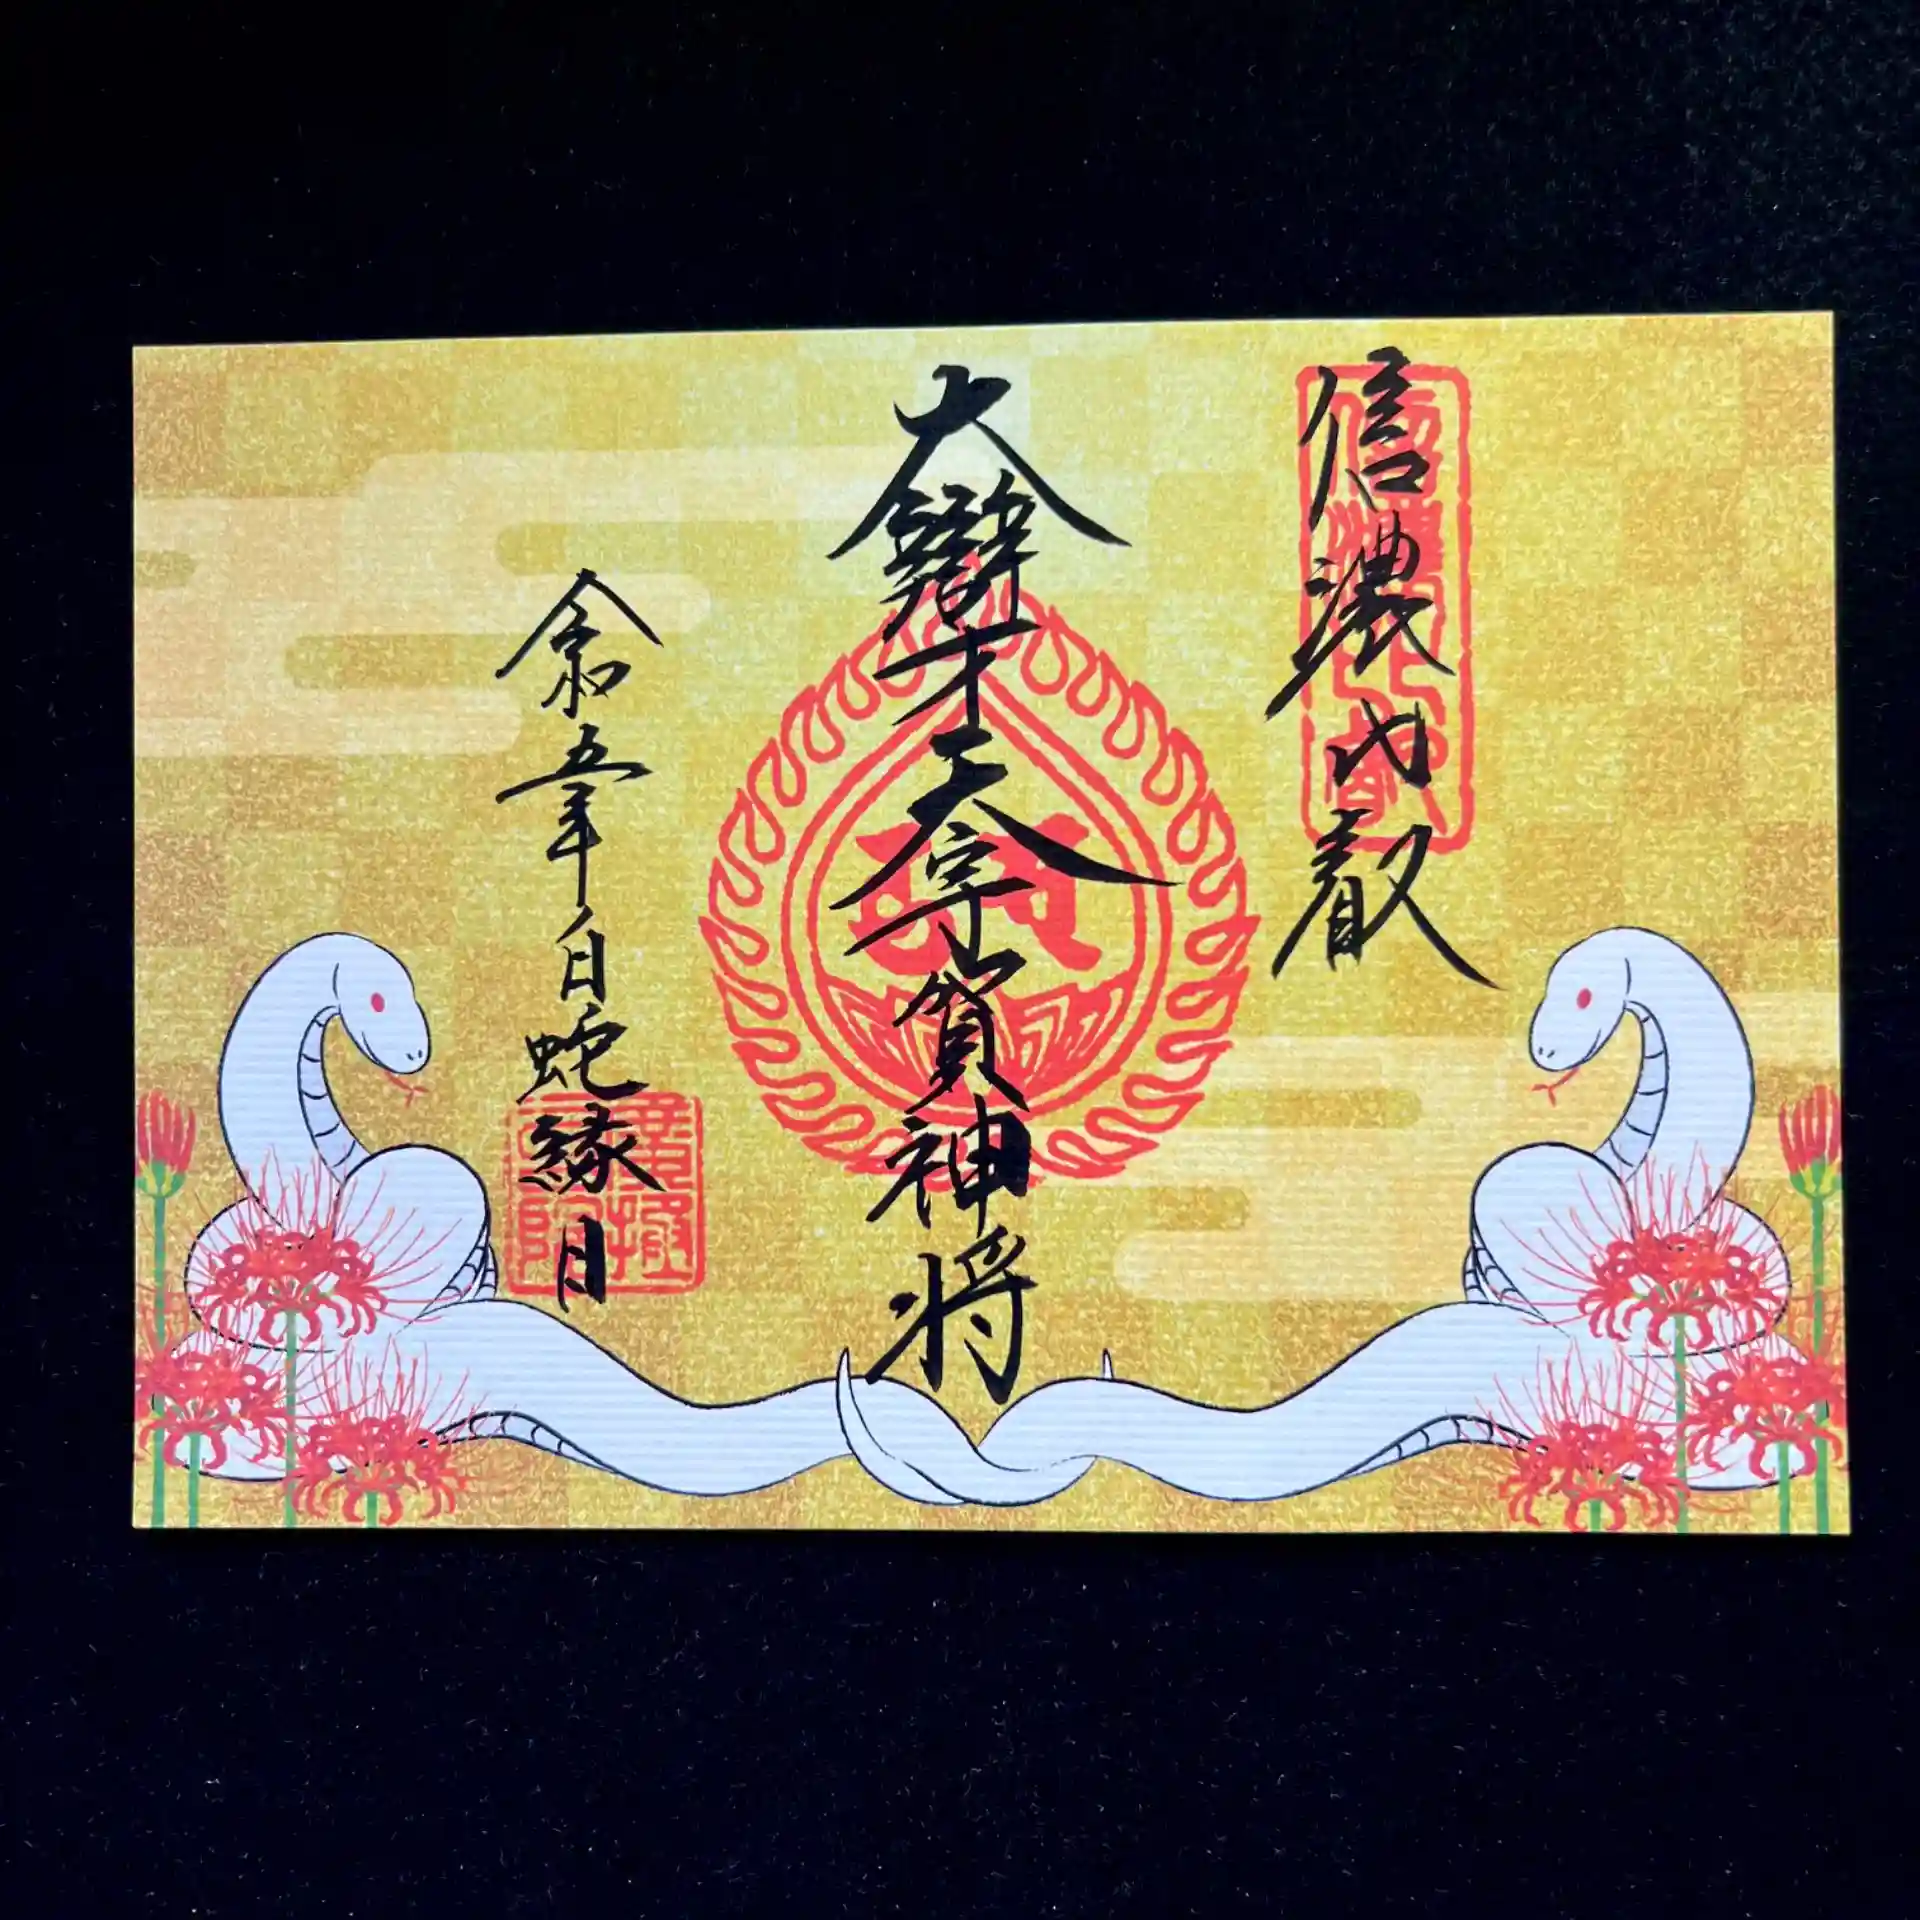 信濃比叡
大辯才天宇賀神将
令和五年白蛇縁日